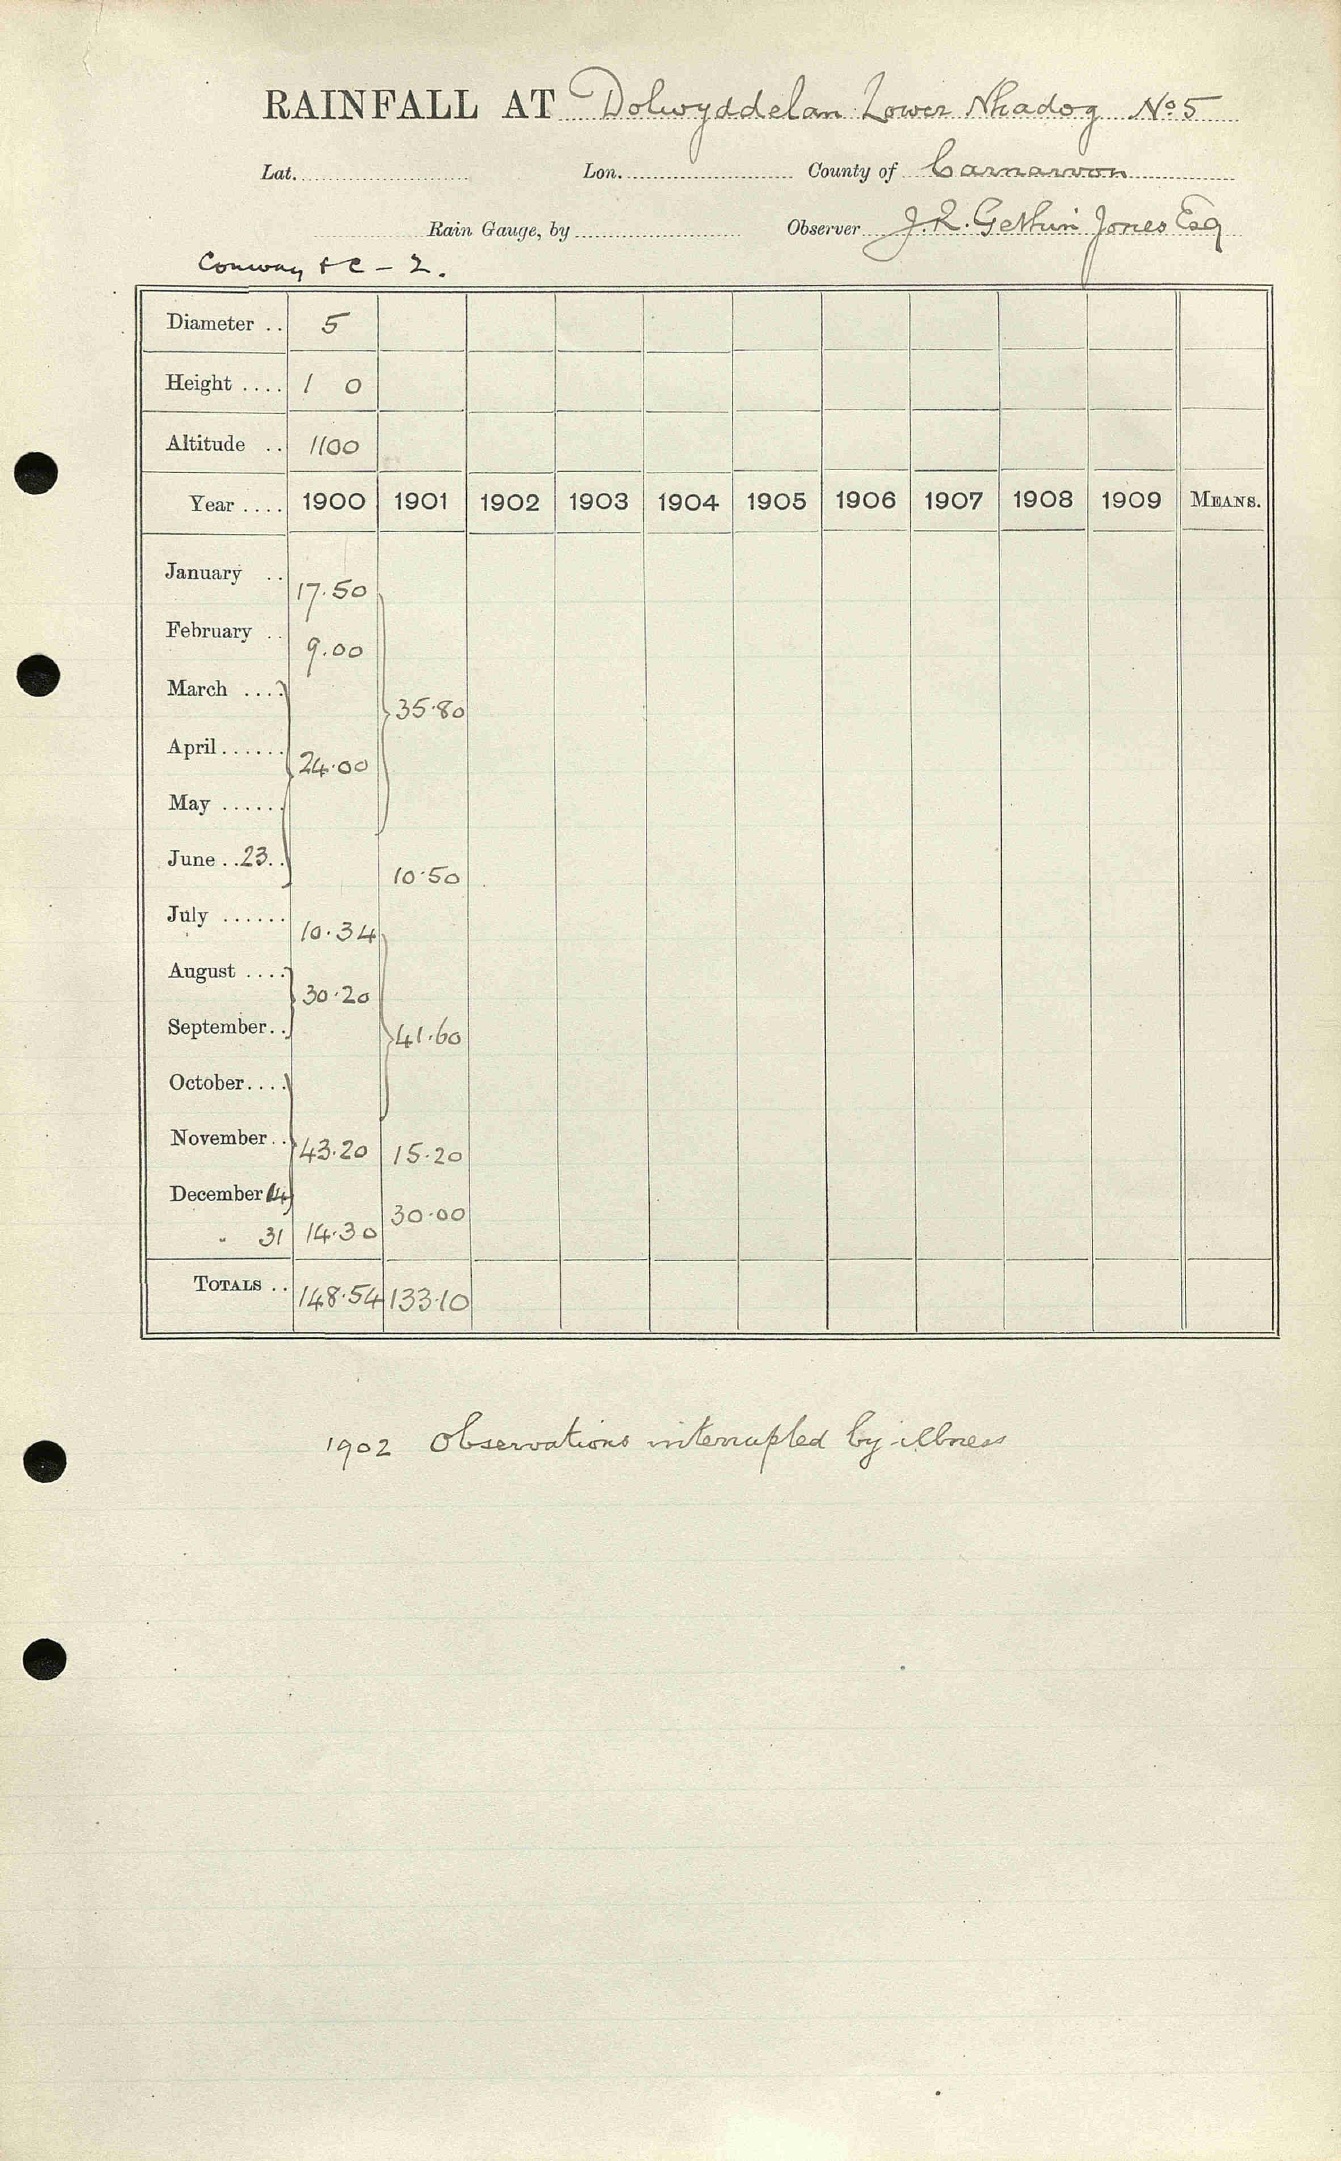 RAINFALL AT Dolwyddelan Lower Nhadog No 5
Lat. Lon. County of Carnarvon
Rain Gauge, by Observer J. R. Gethin Jones Esq
Conway &c - 2.
Diameter .. 5
Height .... 1 0
Altitude .. 1100
Year .... 1900 1901 1902 1903 1904 1905 1906 1907 1908 1909 MEANS.
January .. 17.50
February .. 9.00
March .... 35.80
April...... 24.00
May ......
June ..23.. 10.50
July ...... 10.34
August .... 30.20
September.. 41.60
October....
November.. 43.20 15.20
December 14 30.00
" 31 14.30
TOTALS .. 148.54 133.10
1902 Observations interrupted by illness